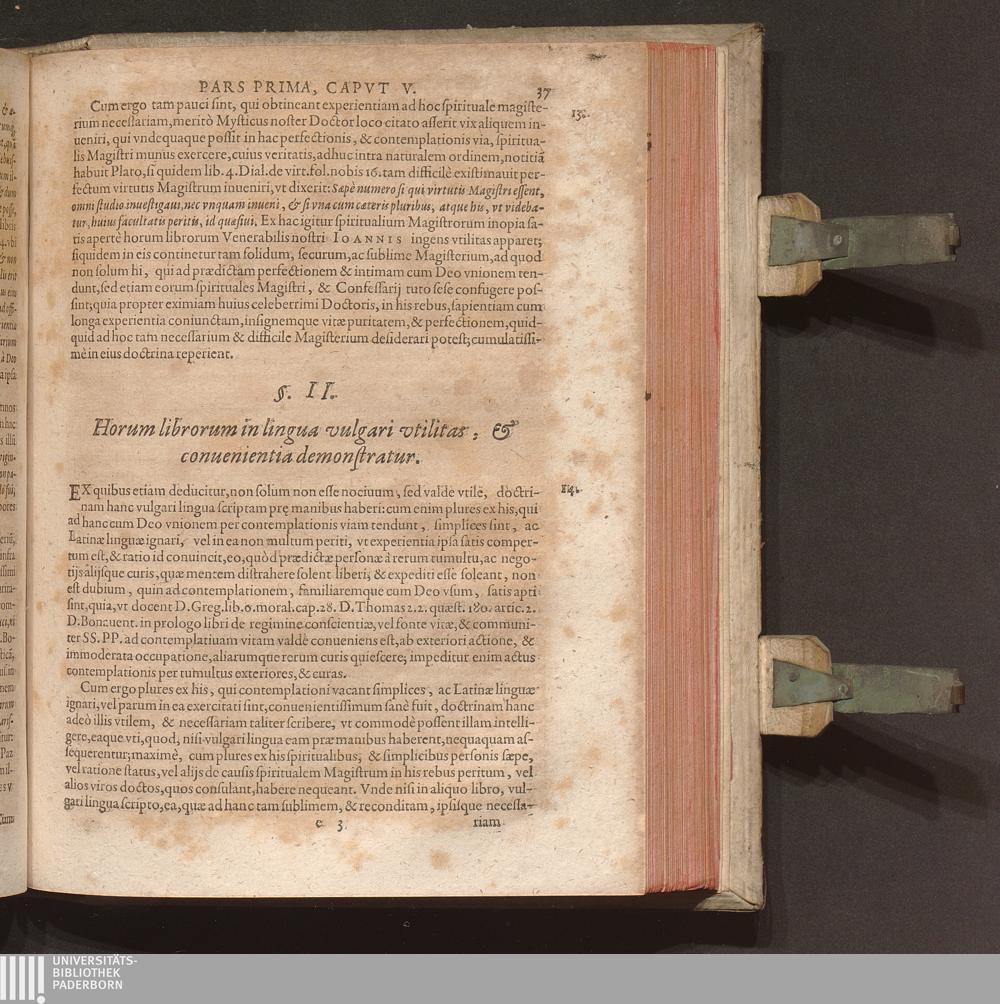 PARS PRIMA, CAPVT V. 37
Cum ergo tam pauci ſint, qui obtineant experientiam ad hoc ſpirituale magiſte-
rium neceſſariam, meritò Myſticus noſter Doctor loco citato aſſerit vix aliquem in-
ueniri, qui vndequaque poſſit in hac perfectionis, & contemplationis via, ſpiritua-
lis Magiſtri munus exercere, cuius veritatis, adhuc intra naturalem ordinem, notitiã
habuit Plato, ſi quidem lib. 4. Dial. de virt. fol. nobis 16. tam difficilè existimauit per-
fectum virtutis Magiſtrum inueniri, vt dixerit: Sæpè numero ſi qui virtutis Magiſtri eſſent,
omni ſtudio inueſtigaui, nec vnquam inueni, & ſi vna cum cæteris pluribus, atque his, vt videba-
tur, huius facultatis peritis, id quæſiui. Ex hac igitur ſpiritualium Magiſtrorum inopia ſa-
tis apertè horum librorum Venerabilis noſtri IOANNIS ingens vtilitas apparet;
ſiquidem in eis continetur tam ſolidum, ſecurum, ac ſublime Magiſterium, ad quod
non ſolum hi, qui ad prædictam perfectionem & intimam cum Deo vnionem ten-
dunt, ſed etiam eorum ſpirituales Magiſtri, & Confeſſarij tuto ſeſe confugere poſ-
ſint; quia propter eximiam huius celeberrimi Doctoris, in his rebus, ſapientiam cum
longa experientia coniunctam, inſignemque vitæ puritatem, & perfectionem, quid-
quid ad hoc tam neceſſarium & difficile Magiſterium deſiderari poteſt; cumulatiſſi-
mè in eius doctrina reperient.
§. II.
Horum librorum in lingua vulgari vtilitas, &
conuenientia demonſtratur.
EX quibus etiam deducitur, non ſolùm non eſſe nociuum, ſed valde vtile, doctri-
nam hanc vulgari lingua ſcriptam prę manibus haberi: cum enim plures ex his, qui
ad hanc cum Deo vnionem per contemplationis viam tendunt, ſimplices ſint, ac
Latinæ linguæ ignari, vel in ea non multum periti, vt experientia ipſa ſatis comper-
tum eſt, & ratio id conuincit, eo, quòd prædictæ perſonæ à rerum tumultu, ac nego-
tijs alijſque curis, quæ mentem diſtrahere ſolent liberi, & expediti eſſe ſoleant, non
eſt dubium, quin ad contemplationem, familiaremque cum Deo vſum, ſatis apti
ſint, quia, vt docent D. Greg. lib. 6. moral. cap. 28. D. Thomas 2. 2. quæſt. 180. artic. 2.
D. Bonauent. in prologo libri de regimine conſcientiæ, vel fonte vitæ, & communi-
ter SS. PP. ad contemplatiuam vitam valdè conueniens eſt, ab exteriori actione, &
immoderata occupatione, aliarumque rerum curis quieſcere; impeditur enim actus
contemplationis per tumultus exteriores, & curas.
Cum ergo plures ex his, qui contemplationi vacant ſimplices, ac Latinæ linguæ
ignari, vel parum in ea exercitati ſint, conuenientiſſimum ſanè fuit, doctrinam hanc
adeò illis vtilem, & neceſſariam taliter ſcribere, vt commodè poſſent illam intelli-
gere, eaque vti, quod, niſi vulgari lingua eam præ manibus haberent, nequaquam aſ-
ſequerentur; maximè, cum plures ex his ſpiritualibus, & ſimplicibus perſonis ſæpe,
vel ratione ſtatus, vel alijs de cauſis ſpiritualem Magiſtrum in his rebus peritum, vel
alios viros doctos, quos conſulant, habere nequeant. Vnde niſi in aliquo libro, vul-
gari lingua ſcripto, ea, quæ ad hanc tam ſublimem, & reconditam, ipſiſque neceſſa-
e 3 riam
UNIVERSITÄTS-
BIBLIOTHEK
PADERBORN